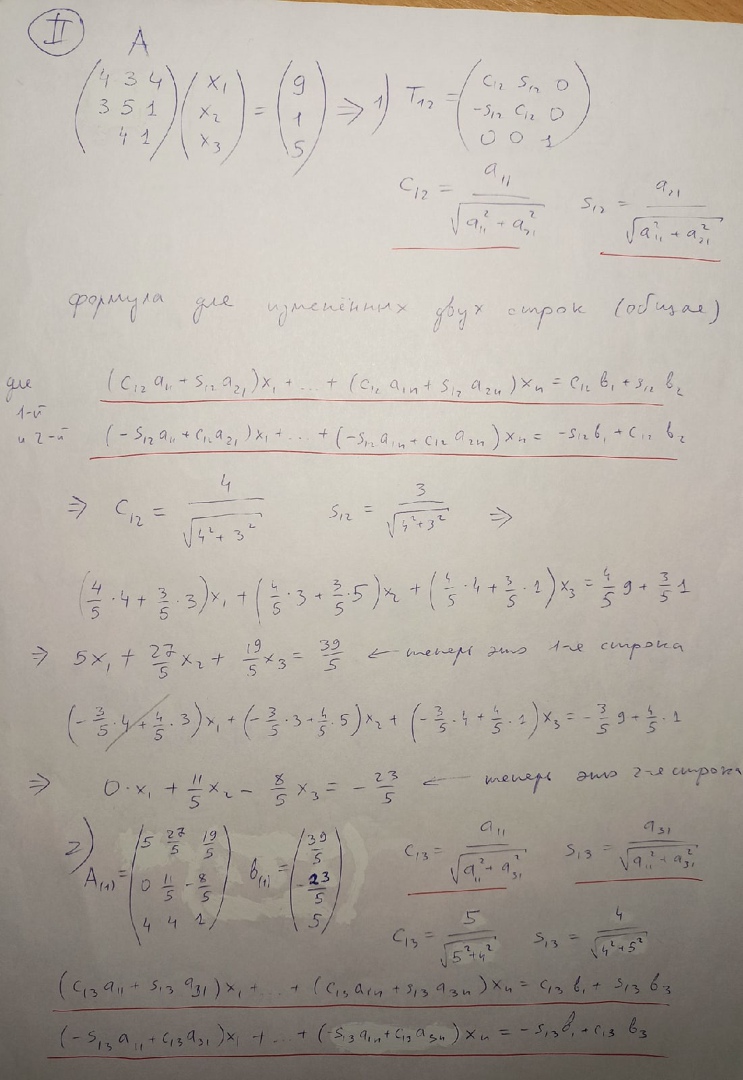 II
A
(4 3 4; 3 5 1; 4 1)(x₁; x₂; x₃) = (9; 1; 5) ⇒ 1) T₁₂ = (c₁₂ s₁₂ 0; -s₁₂ c₁₂ 0; 0 0 1)
c₁₂ = a₁₁ / √(a₁₁² + a₂₁²) s₁₂ = a₂₁ / √(a₁₁² + a₂₁²)
формула для изменённых двух строк (общая)
для 1-й и 2-й
(c₁₂ a₁₁ + s₁₂ a₂₁)x₁ + ... + (c₁₂ a₁ₙ + s₁₂ a₂ₙ)xₙ = c₁₂ b₁ + s₁₂ b₂
(-s₁₂ a₁₁ + c₁₂ a₂₁)x₁ + ... + (-s₁₂ a₁ₙ + c₁₂ a₂ₙ)xₙ = -s₁₂ b₁ + c₁₂ b₂
⇒ c₁₂ = 4 / √(4² + 3²) s₁₂ = 3 / √(4² + 3²) ⇒
(4/5 · 4 + 3/5 · 3)x₁ + (4/5 · 3 + 3/5 · 5)x₂ + (4/5 · 4 + 3/5 · 1)x₃ = 4/5 9 + 3/5 1
⇒ 5x₁ + 27/5 x₂ + 19/5 x₃ = 39/5 ← теперь это 1-я строка
(-3/5 · 4 + 4/5 · 3)x₁ + (-3/5 · 3 + 4/5 · 5)x₂ + (-3/5 · 4 + 4/5 · 1)x₃ = -3/5 9 + 4/5 · 1
⇒ 0 · x₁ + 11/5 x₂ - 8/5 x₃ = -23/5 ← теперь это 2-я строка
2) A₍₁₎ = (5 27/5 19/5; 0 11/5 -8/5; 4 4 1) b₍₁₎ = (39/5; -23/5; 5) c₁₃ = a₁₁ / √(a₁₁² + a₃₁²) s₁₃ = a₃₁ / √(a₁₁² + a₃₁²)
c₁₃ = 5 / √(5² + 4²) s₁₃ = 4 / √(4² + 5²)
(c₁₃ a₁₁ + s₁₃ a₃₁)x₁ + ... + (c₁₃ a₁ₙ + s₁₃ a₃ₙ)xₙ = c₁₃ b₁ + s₁₃ b₃
(-s₁₃ a₁₁ + c₁₃ a₃₁)x₁ + ... + (-s₁₃ a₁ₙ + c₁₃ a₃ₙ)xₙ = -s₁₃ b₁ + c₁₃ b₃